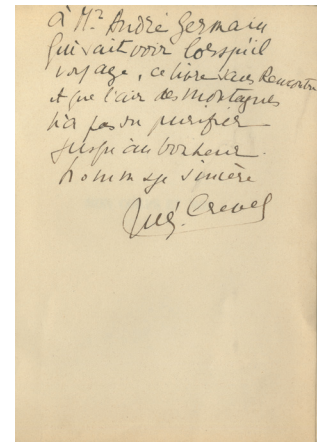 à Mr André Germain
qui sait voir lorsqu'il
voyage, ce livre sans Rencontre
et que l'air des montagnes
n'a pas su purifier
jusqu'au bonheur.
hommage sincère
René Crevel